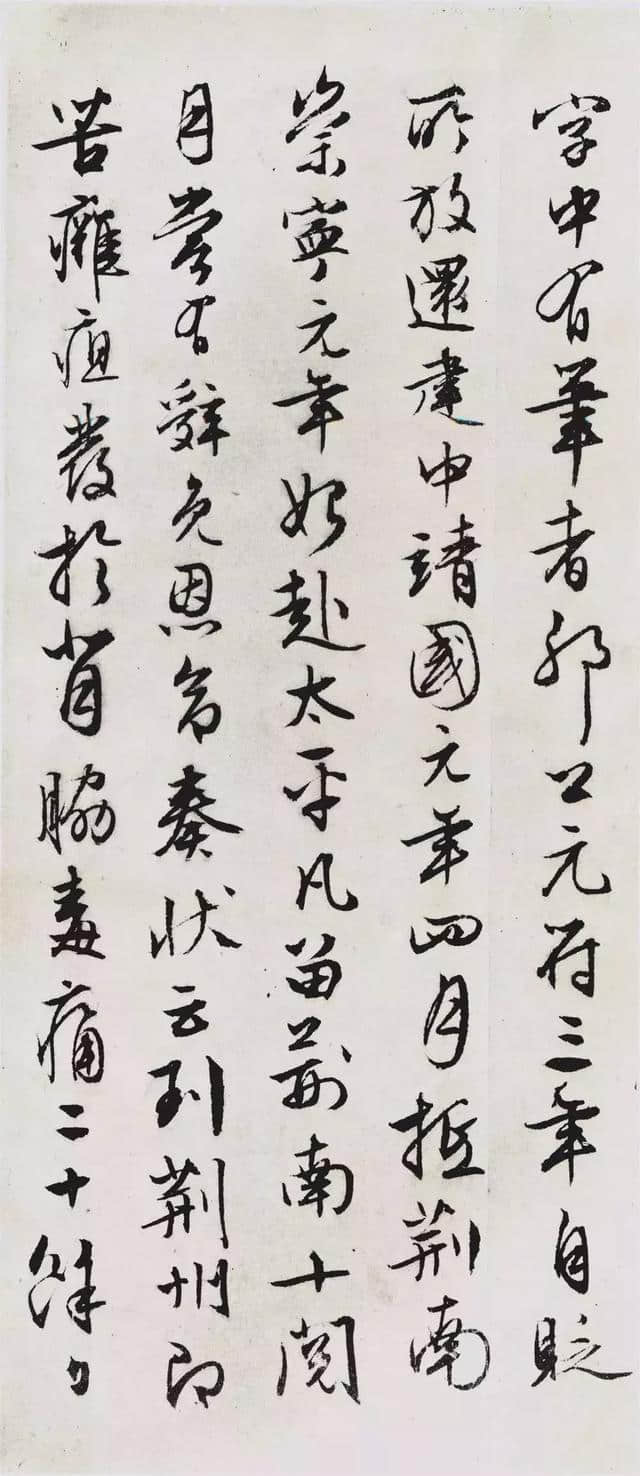 字中有筆者耶公元符三年自貶
所放還建中靖國元年四月抵荆南
崇寧元年始赴太平凡留荆南十閱
月嘗有辭免恩命奏狀云到荆州即
苦癰疽發於背脇毒痛二十餘日